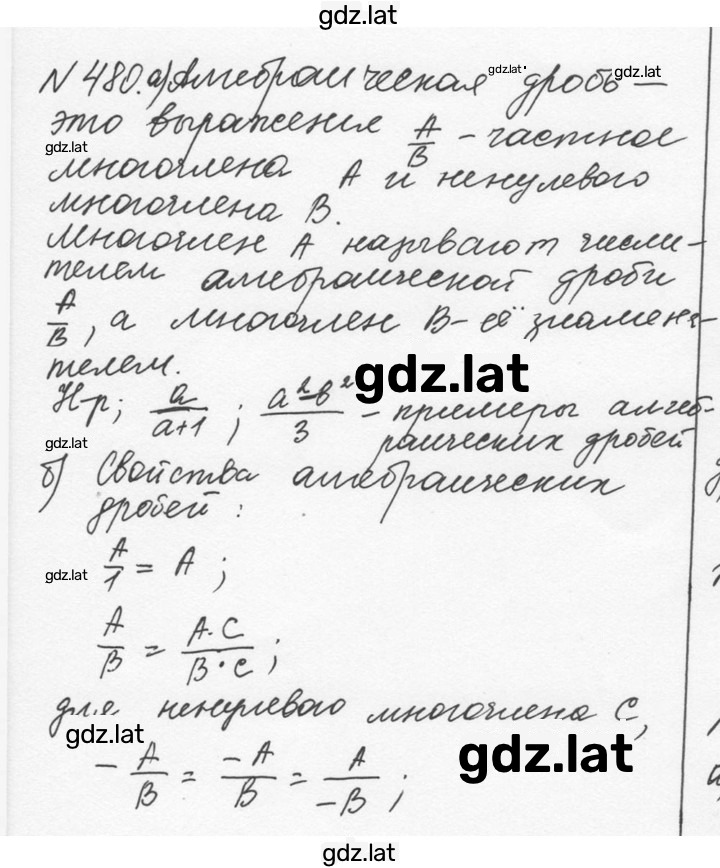 gdz.lat
N 480. а) Алгебраическая gdz.lat дробь —
это выражения A/B - частное
gdz.lat
многочлена A и ненулевого
многочлена B.
Многочлен A называют числи-
телем алгебраической дроби
A/B, а многочлен B - её знамена-
телем.
gdz.lat
Нр; a/(a+1); (a²-b²)/3 - примеры алгеб-
раических дробей
gdz.lat
б) Свойства алгебраических
дробей:
gdz.lat A/1 = A;
A/B = (A·C)/(B·C);
для ненулевого многочлена C,
gdz.lat
gdz.lat
- A/B = -A/B = A/-B;
gdz.lat